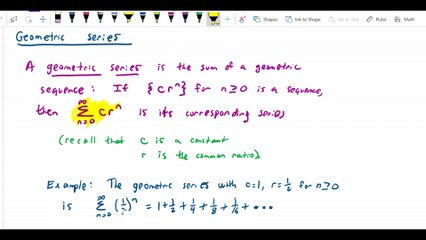 Ink to Shape Ink to Text
Geometric series
A geometric series is the sum of a geometric
sequence: If {crⁿ} for n≥0 is a sequence,
then ∑_{n=0}^{∞} crⁿ is its corresponding series
(recall that c is a constant
r is the common ratio).
Example: The geometric series with c=1, r=1/2 for n≥0
is ∑_{n=0}^{∞} (1/2)ⁿ = 1+1/2+1/4+1/8+1/16+•••